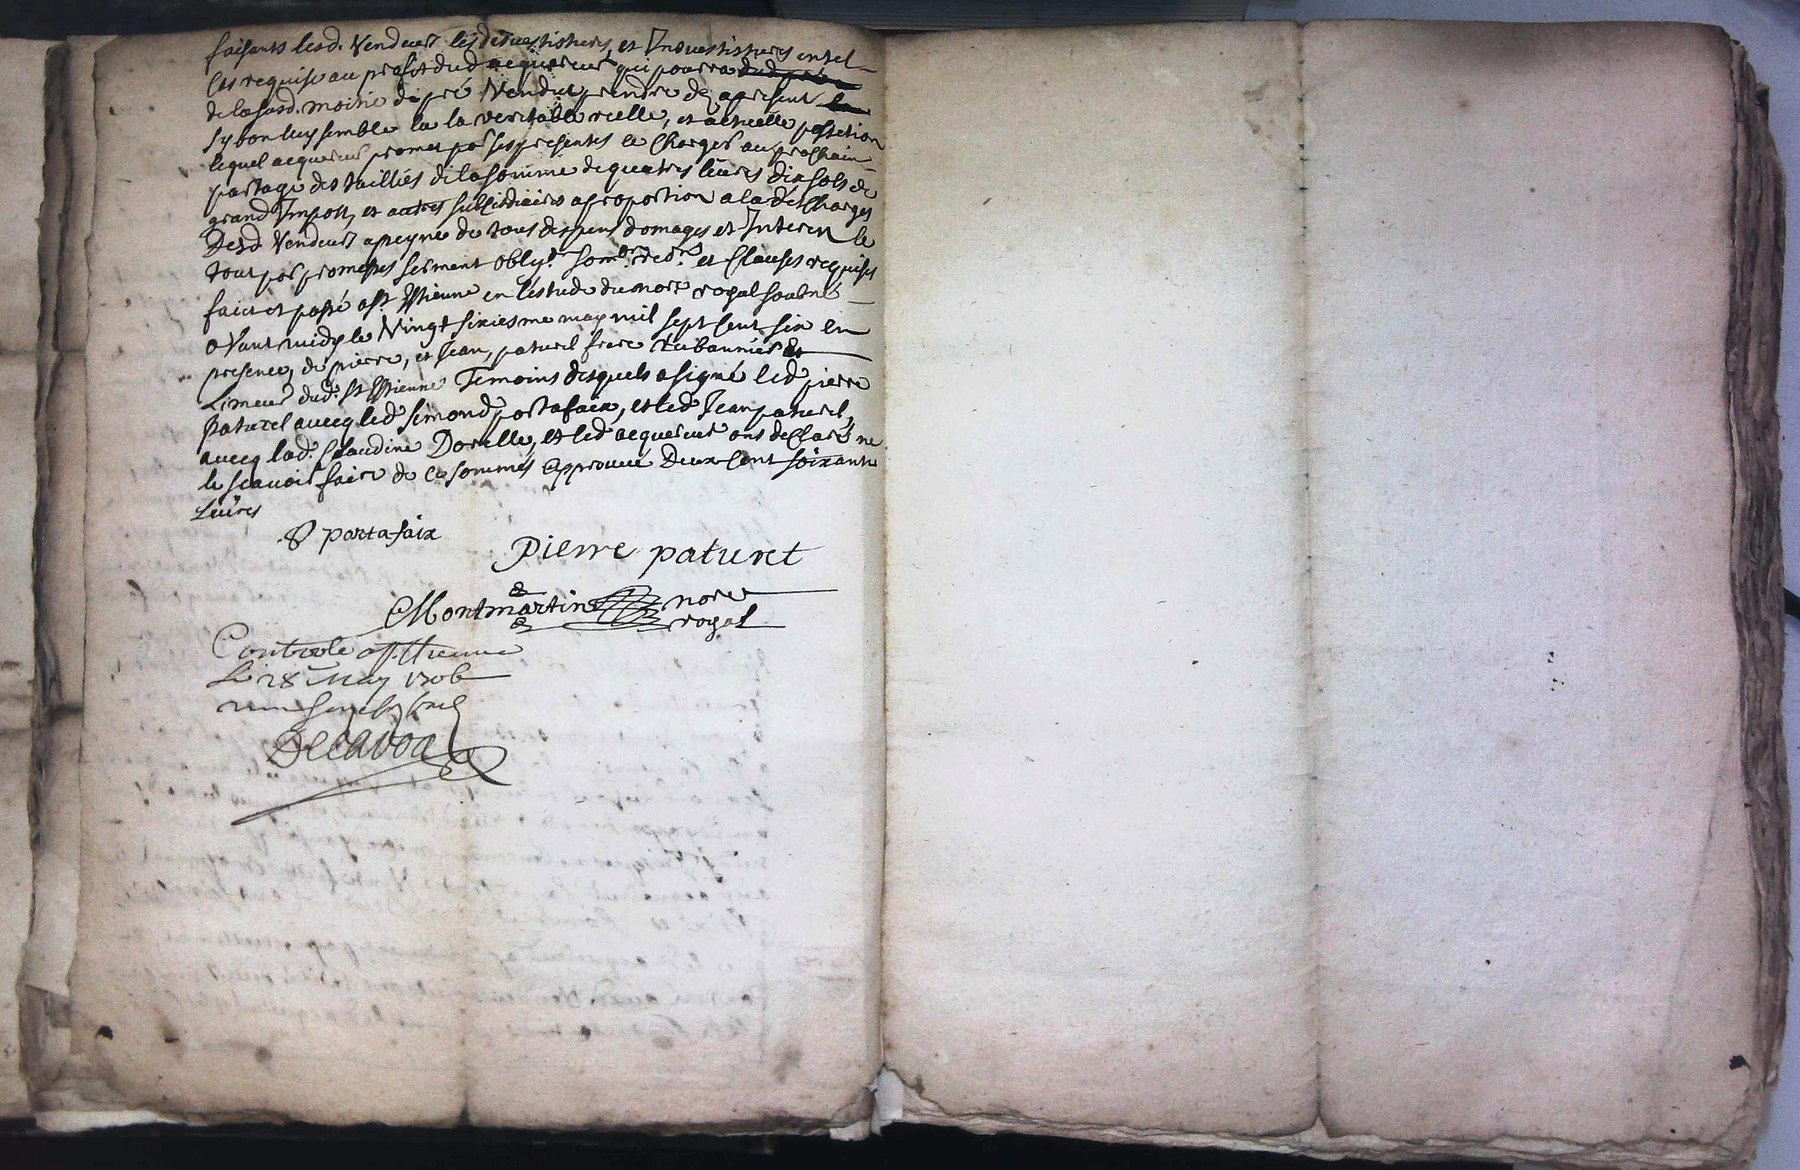 faisants lesd. Vendeurs les desvestitures, et Investitures en tel
cas requise au profit dud acquereur qui pourra
de lasusd. moitié de pré Vendu, prendre dez apresent
sy bon luy semble la véritable réelle, et actuelle possetion
lequel acquereur promet par ses presentes se Charger au prochain
partage des tailliés de la somme de quatres livres dix sols de
grand Impost, et autres subsidiaires aproportion a la descharges
Desd Vendeurs apeyne de tous despens domages et Interest le
tout par promesses serment oblig.on et Clauses requises
faict et passé a St Estienne en l'estude du nore royal soubné
avant midy le Vingt sixiesme may mil sept cent six en
presence, de pierre, et Jean, paturel frere Rubannier et
Limeur dud. St Estienne Temoins desquels a signé led pierre
paturel avecq led simond portafaix, et led Jean paturel,
avecq lad. Claudine Dorelle, et led acquereur ont declaré ne
le scavoir faire de ce sommés Approuvé Deux Cent soixante
Livres
S portafaix
Pierre paturet
Montmartin nore
royal
Controle a St Etienne
Le 28 May 1706
Decavoa